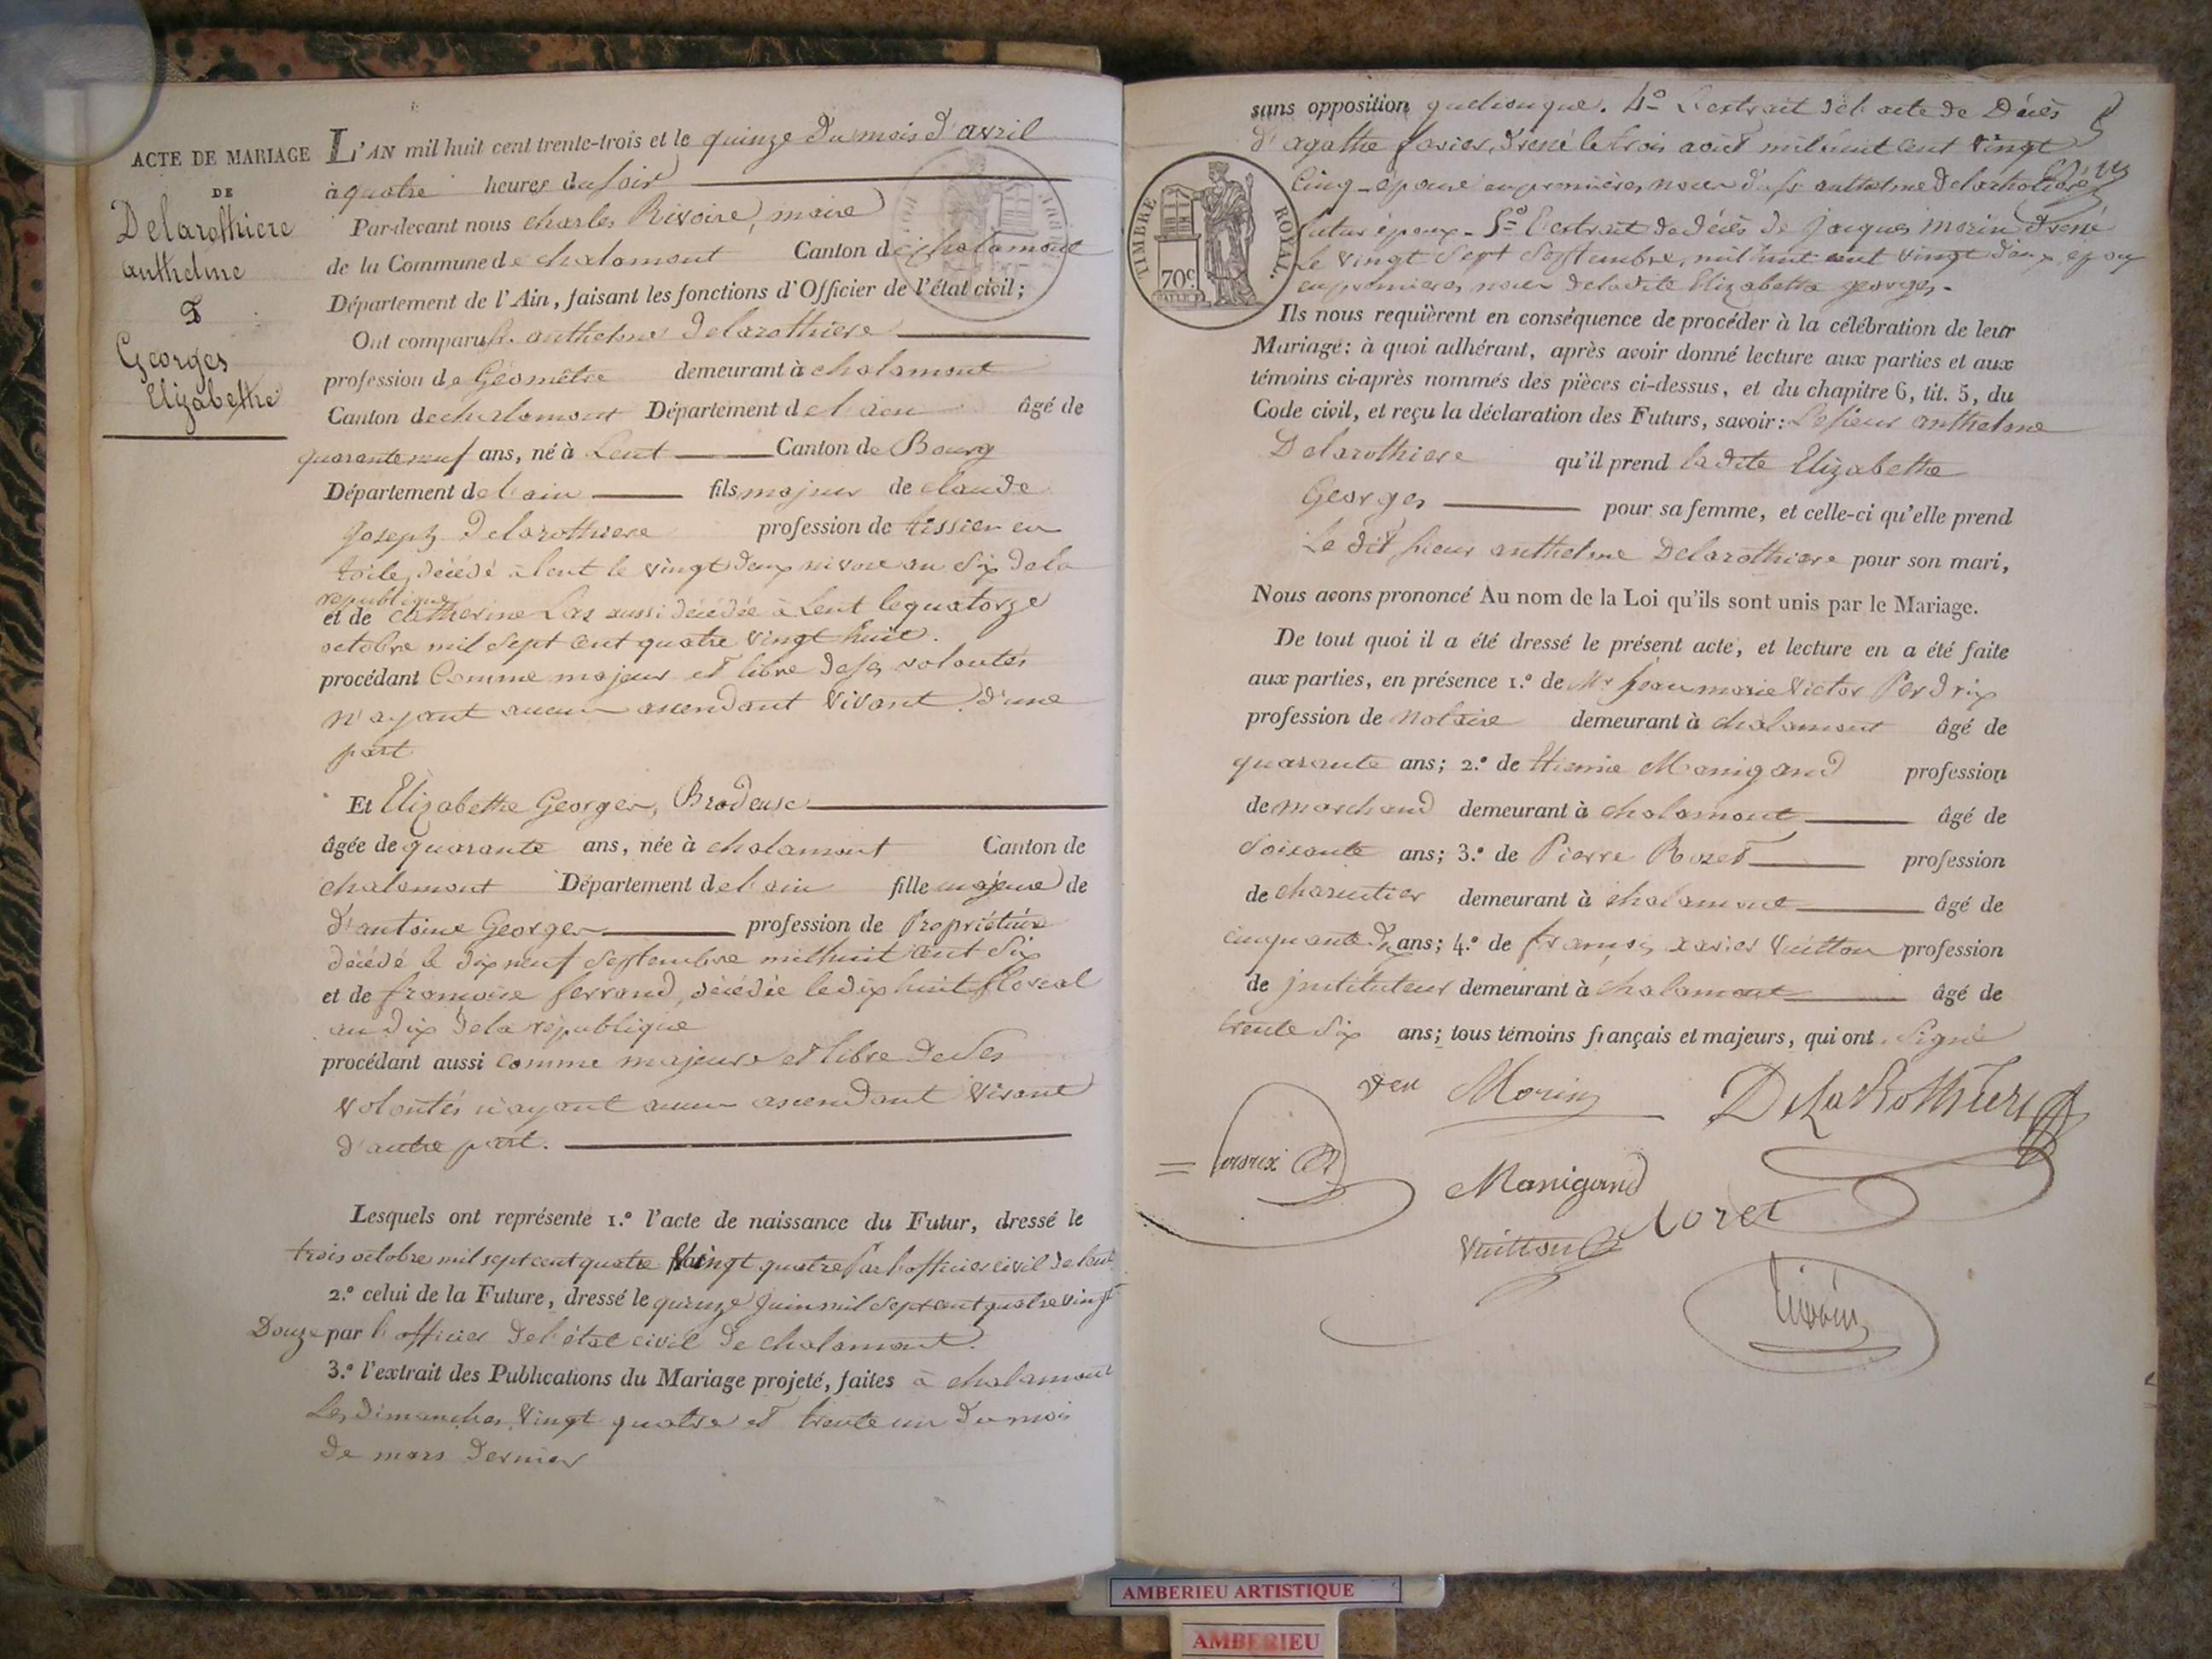 ACTE DE MARIAGE
DE
Delarothiere
anthelme
&
Georges
Elizabethe
L'AN mil huit cent trente-trois et le quinze du mois d'avril
à quatre heures du soir
Par-devant nous charles Rivoire, maire
de la Commune de chalamont Canton de chalamont
Département de l'Ain, faisant les fonctions d'Officier de l'état civil;
Ont comparu sr. anthelme Delarothiere
profession de Géomètre demeurant à chalamont
Canton de chalamont Département de l'ain âgé de
quarante neuf ans, né à Lent Canton de Bourg
Département de l'ain fils majeur de claude
Joseph Delarothiere profession de tissier en
toile, décédé à lent le vingt deux nivose an Six de la
republique
et de Catherine Las aussi décédée à Lent le quatorze
octobre mil sept cent quatre vingt huit.
procédant Comme majeur et libre de ses volontés
n'ayant aucun ascendant vivant d'une
part
Et Elizabethe Georges, Brodeuse
âgée de quarante ans, née à chalamont Canton de
chalamont Département de l'ain fille majeure de
d'antoine Georges profession de Propriétaire
décédé le dix neuf Septembre mil huit cent Six
et de françoise ferrand, décédée le dix huit floreal
an dix de la république
procédant aussi comme majeure et libre de ses
volontés n'ayant aucun ascendant vivant
d'autre part.
Lesquels ont représenté 1.º l'acte de naissance du Futur, dressé le
trois octobre mil sept cent quatre vingt quatre Par l'officier civil de lent
2.º celui de la Future, dressé le quinze Juin mil Sept cent quatre vingt
Douze par l'officier de l'état civil de chalamont.
3.º l'extrait des Publications du Mariage projeté, faites à chalamont
Les dimanches vingt quatre et trente un du mois
de mars dernier
sans opposition quelconque. 4º L'extrait de l'acte de Décès
d'agathe favier, dressé le trois août mil huit cent vingt
Cinq, épouse en premières noces du sr anthelme Delarothiere
futur époux. 5º L'extrait de décès de Jacques Morin dressé
Le vingt Sept Septembre, mil huit cent vingt deux, époux
en premières noces de ladite Elizabethe georges.
TIMBRE ROYAL.
70c
Ils nous requièrent en conséquence de procéder à la célébration de leur
Mariage: à quoi adhérant, après avoir donné lecture aux parties et aux
témoins ci-après nommés des pièces ci-dessus, et du chapitre 6, tit. 5, du
Code civil, et reçu la déclaration des Futurs, savoir: Le sieur anthelme
Delarothiere qu'il prend ladite Elizabethe
Georges pour sa femme, et celle-ci qu'elle prend
Le dit sieur anthelme Delarothiere pour son mari,
Nous avons prononcé Au nom de la Loi qu'ils sont unis par le Mariage.
De tout quoi il a été dressé le présent acte, et lecture en a été faite
aux parties, en présence 1.º de Mr jean marie Victor Perdrix
profession de notaire demeurant à chalamont âgé de
quarante ans; 2.º de Etienne Manigand profession
de marchand demeurant à chalamont âgé de
Soixante ans; 3.º de Pierre Rozet profession
de charcutier demeurant à chalamont âgé de
cinquante ans; 4.º de françois xavier Vuitton profession
de jnstituteur demeurant à chalamont âgé de
trente Six ans; tous témoins français et majeurs, qui ont Signé
Morin DelaRothiere
Perdrix
Manigand
Rozet
Vuitton
Rivoire
AMBERIEU ARTISTIQUE
AMBERIEU